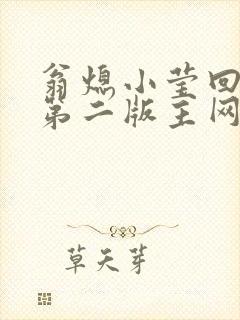 翁熄小莹回
第二版主网
草天芽